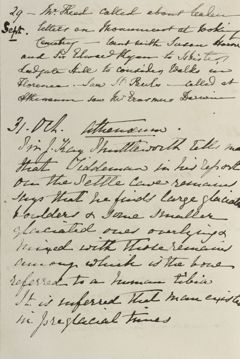 29 – Mr. Theed called about Galen
Sept. letters on Monument at
Country – went with Susan Horner
and Sir Edward Ryan to
Ludgate Hill to consider walks in
Florence – Saw St Pauls – called at
Athenaeum saw Mr Erasmus Darwin
31. Oct. Athenaeum.
Sir J. Kay Shuttleworth tells me
that Tiddeman in his report
on the Settle cave remains
says that he finds large glacial
boulders & some smaller
glaciated ones overlying &
mixed with those remains
among which is the bone
referred to a human tibia
It is inferred that man existed
in preglacial times